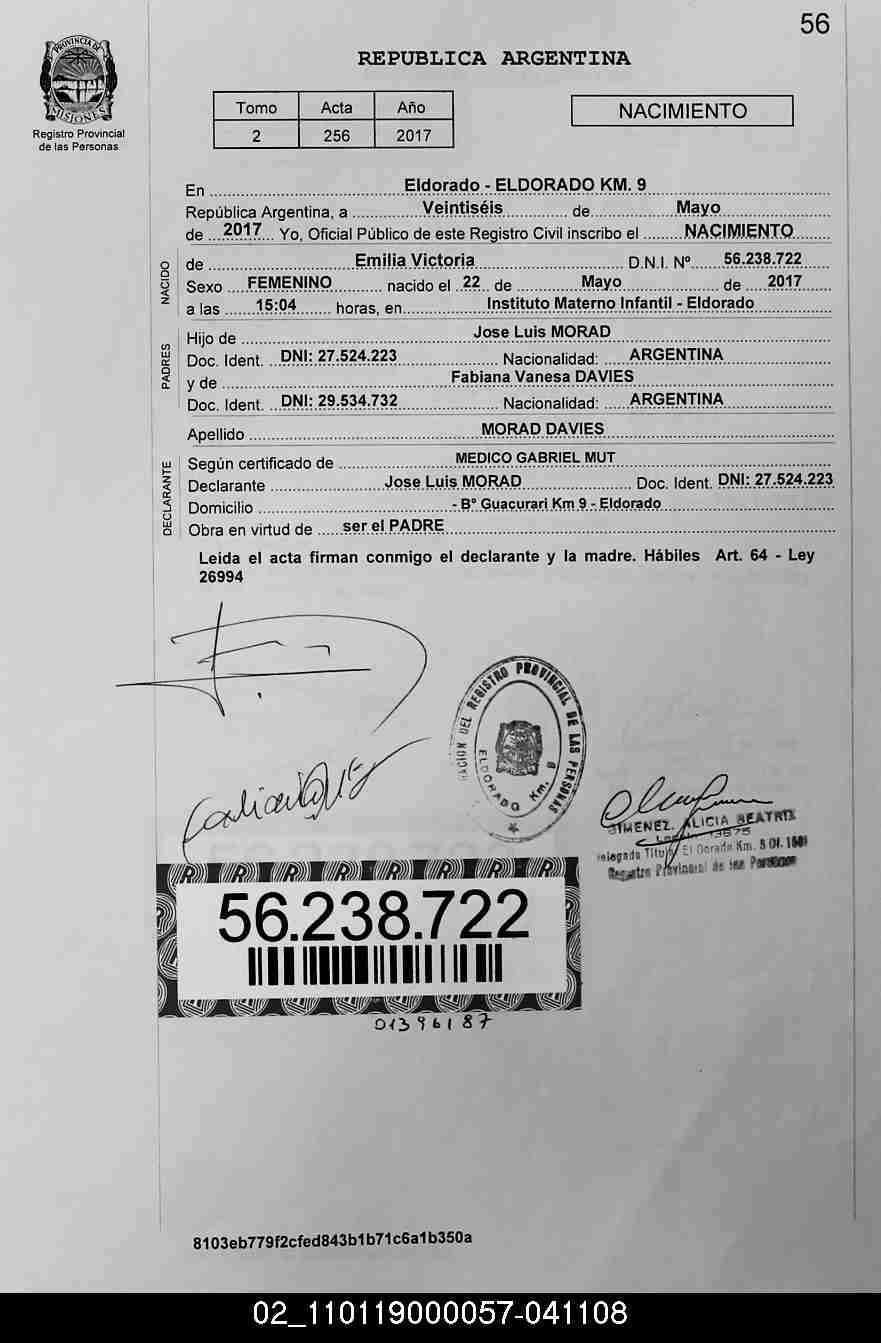 56
PROVINCIA DE
MISIONES
Registro Provincial
de las Personas
REPUBLICA ARGENTINA
Tomo Acta Año
2 256 2017
NACIMIENTO
En Eldorado - ELDORADO KM. 9
República Argentina, a Veintiséis de Mayo
de 2017 Yo, Oficial Público de este Registro Civil inscribo el NACIMIENTO
NACIDO
de Emilia Victoria D.N.I. Nº 56.238.722
Sexo FEMENINO nacido el 22 de Mayo de 2017
a las 15:04 horas, en Instituto Materno Infantil - Eldorado
PADRES
Hijo de Jose Luis MORAD
Doc. Ident. DNI: 27.524.223 Nacionalidad: ARGENTINA
y de Fabiana Vanesa DAVIES
Doc. Ident. DNI: 29.534.732 Nacionalidad: ARGENTINA
Apellido MORAD DAVIES
DECLARANTE
Según certificado de MEDICO GABRIEL MUT
Declarante Jose Luis MORAD Doc. Ident. DNI: 27.524.223
Domicilio - B° Guacurari Km 9 - Eldorado
Obra en virtud de ser el PADRE
Leida el acta firman conmigo el declarante y la madre. Hábiles Art. 64 - Ley
26994
DEL REGISTRO PROVINCIAL DE LAS PERSONAS
ELDORADO Km.
GIMENEZ, ALICIA BEATRIZ
El Dorado Km.
Registro Provincial de las Personas
56.238.722
01396187
8103eb779f2cfed843b1b71c6a1b350a
02_110119000057-041108